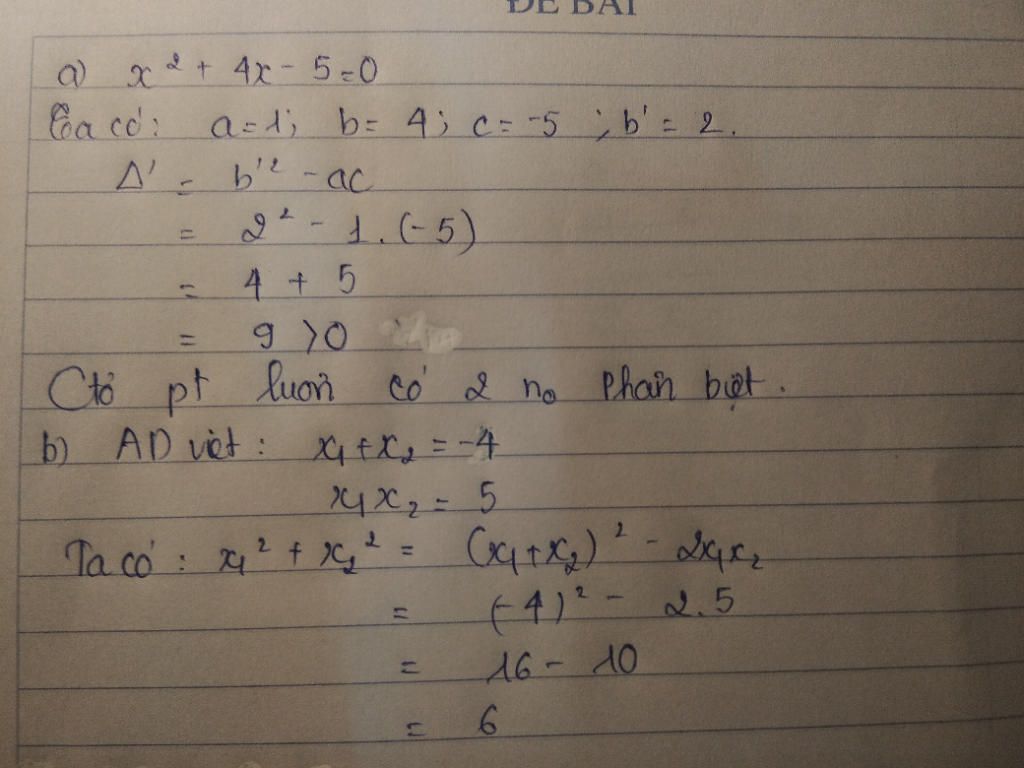 ĐỀ BÀI
a) x² + 4x - 5 = 0
Ta có: a = 1; b = 4; c = -5; b' = 2.
Δ' = b'² - ac
= 2² - 1.(-5)
= 4 + 5
= 9 > 0
Ctỏ pt luôn có 2 no phân biệt.
b) AD viét: x₁ + x₂ = -4
x₁x₂ = 5
Ta có: x₁² + x₂² = (x₁ + x₂)² - 2x₁x₂
= (-4)² - 2.5
= 16 - 10
= 6